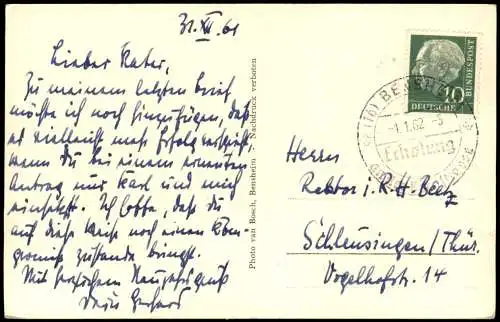 31.XII.61
Lieber Vater,
Zu meinem letzten Brief
möchte ich noch hinzufügen, daß
es vielleicht mehr Erfolg verspricht,
wenn Du bei einem erneuten
Antrag nur Karl und mich
einsetzt. Ich hoffe, daß Du
auf diese Weise noch einen Kom-
promiß zustande bringst.
Mit herzlichem Neujahrsgruß
Dein Gerhard
Photo van Bosch, Bensheim Nachdruck verboten
10
DEUTSCHE
BUNDESPOST
(16) BENSHEIM
-1.1.62-3
Erholung
Herrn
Rektor i.R. H. Beetz
Schleusingen/Thür.
Vogelhofstr. 14